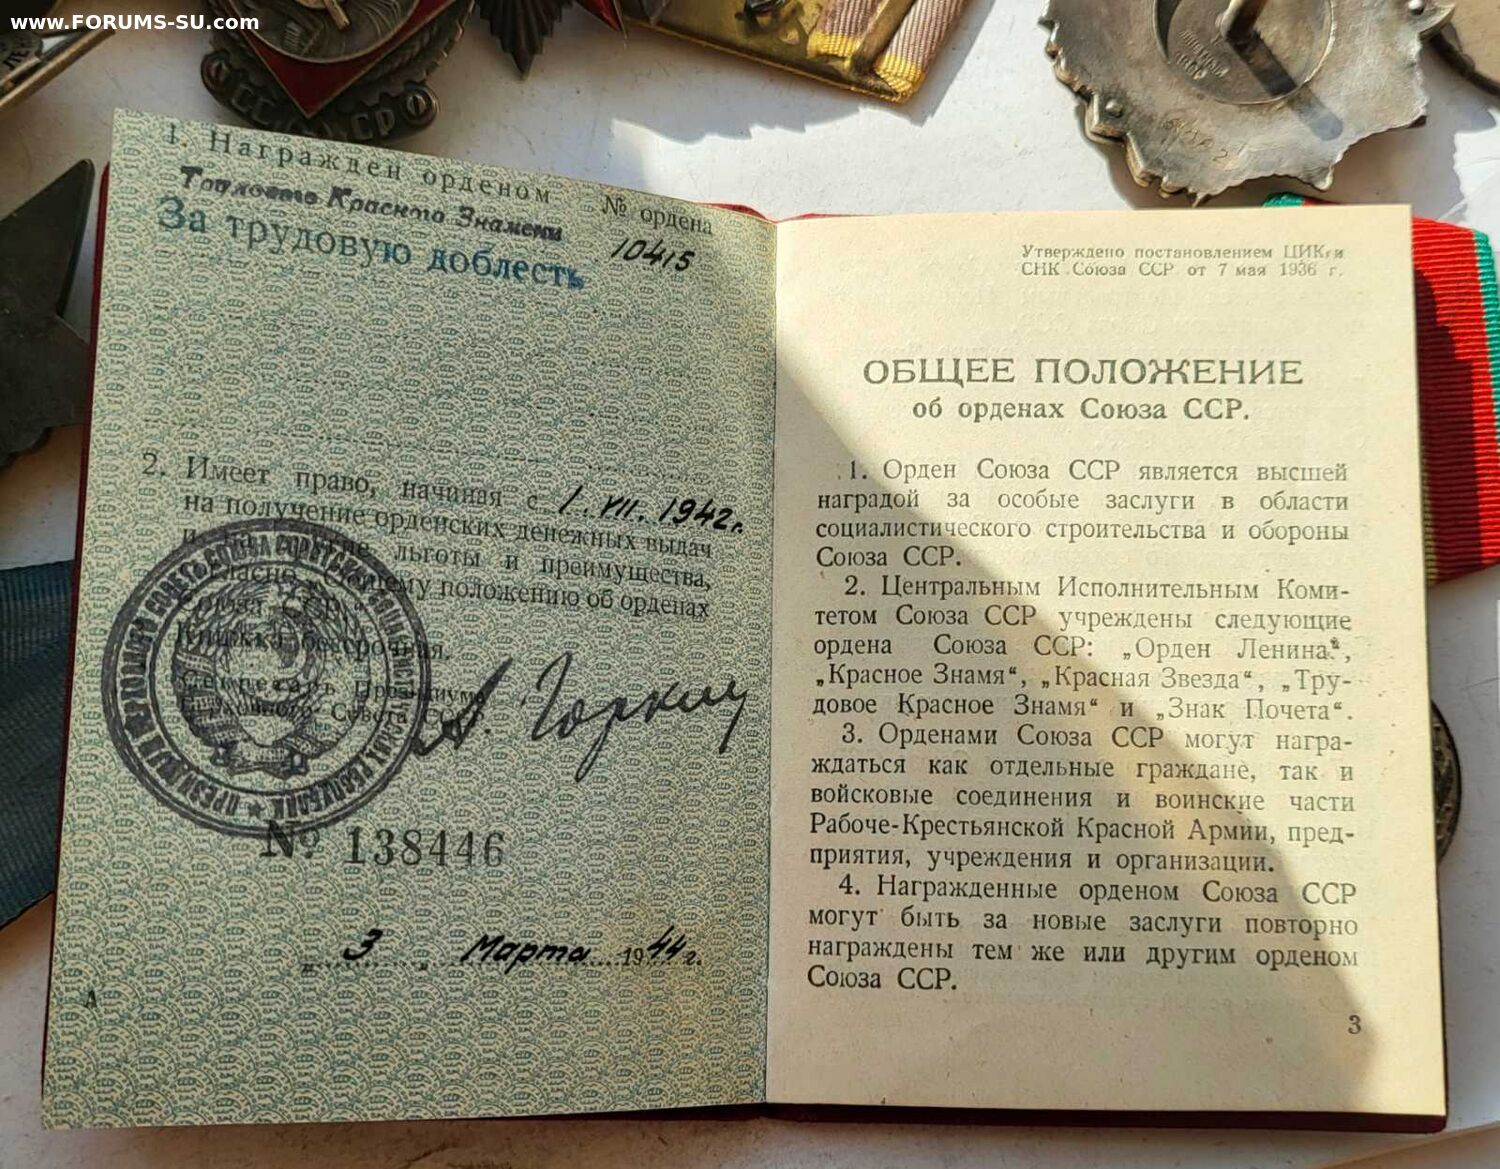 www.FORUMS-SU.com
1. Награжден орденом
№ ордена
Трудового Красного Знамени
10415
За трудовую доблесть
2. Имеет право, начиная с 1. VII. 1942г.
на получение орденских денежных выдач
и льготы и преимущества,
согласно „Общему положению об орденах
Союза ССР“.
Книжка бессрочная.
Секретарь Президиума
Верховного Совета СССР
А. Горкин
ПРЕЗИДИУМ ВЕРХОВНОГО СОВЕТА СОЮЗА СОВЕТСКИХ СОЦИАЛИСТИЧЕСКИХ РЕСПУБЛИК
№ 138446
„ 3 „ Марта 1944 г.
А
Утверждено постановлением ЦИК и
СНК Союза ССР от 7 мая 1936 г.
ОБЩЕЕ ПОЛОЖЕНИЕ
об орденах Союза ССР.
1. Орден Союза ССР является высшей
наградой за особые заслуги в области
социалистического строительства и обороны
Союза ССР.
2. Центральным Исполнительным Коми-
тетом Союза ССР учреждены следующие
ордена Союза ССР: „Орден Ленина“,
„Красное Знамя“, „Красная Звезда“, „Тру-
довое Красное Знамя“ и „Знак Почета“.
3. Орденами Союза ССР могут награ-
ждаться как отдельные граждане, так и
войсковые соединения и воинские части
Рабоче-Крестьянской Красной Армии, пред-
приятия, учреждения и организации.
4. Награжденные орденом Союза ССР
могут быть за новые заслуги повторно
награждены тем же или другим орденом
Союза ССР.
3